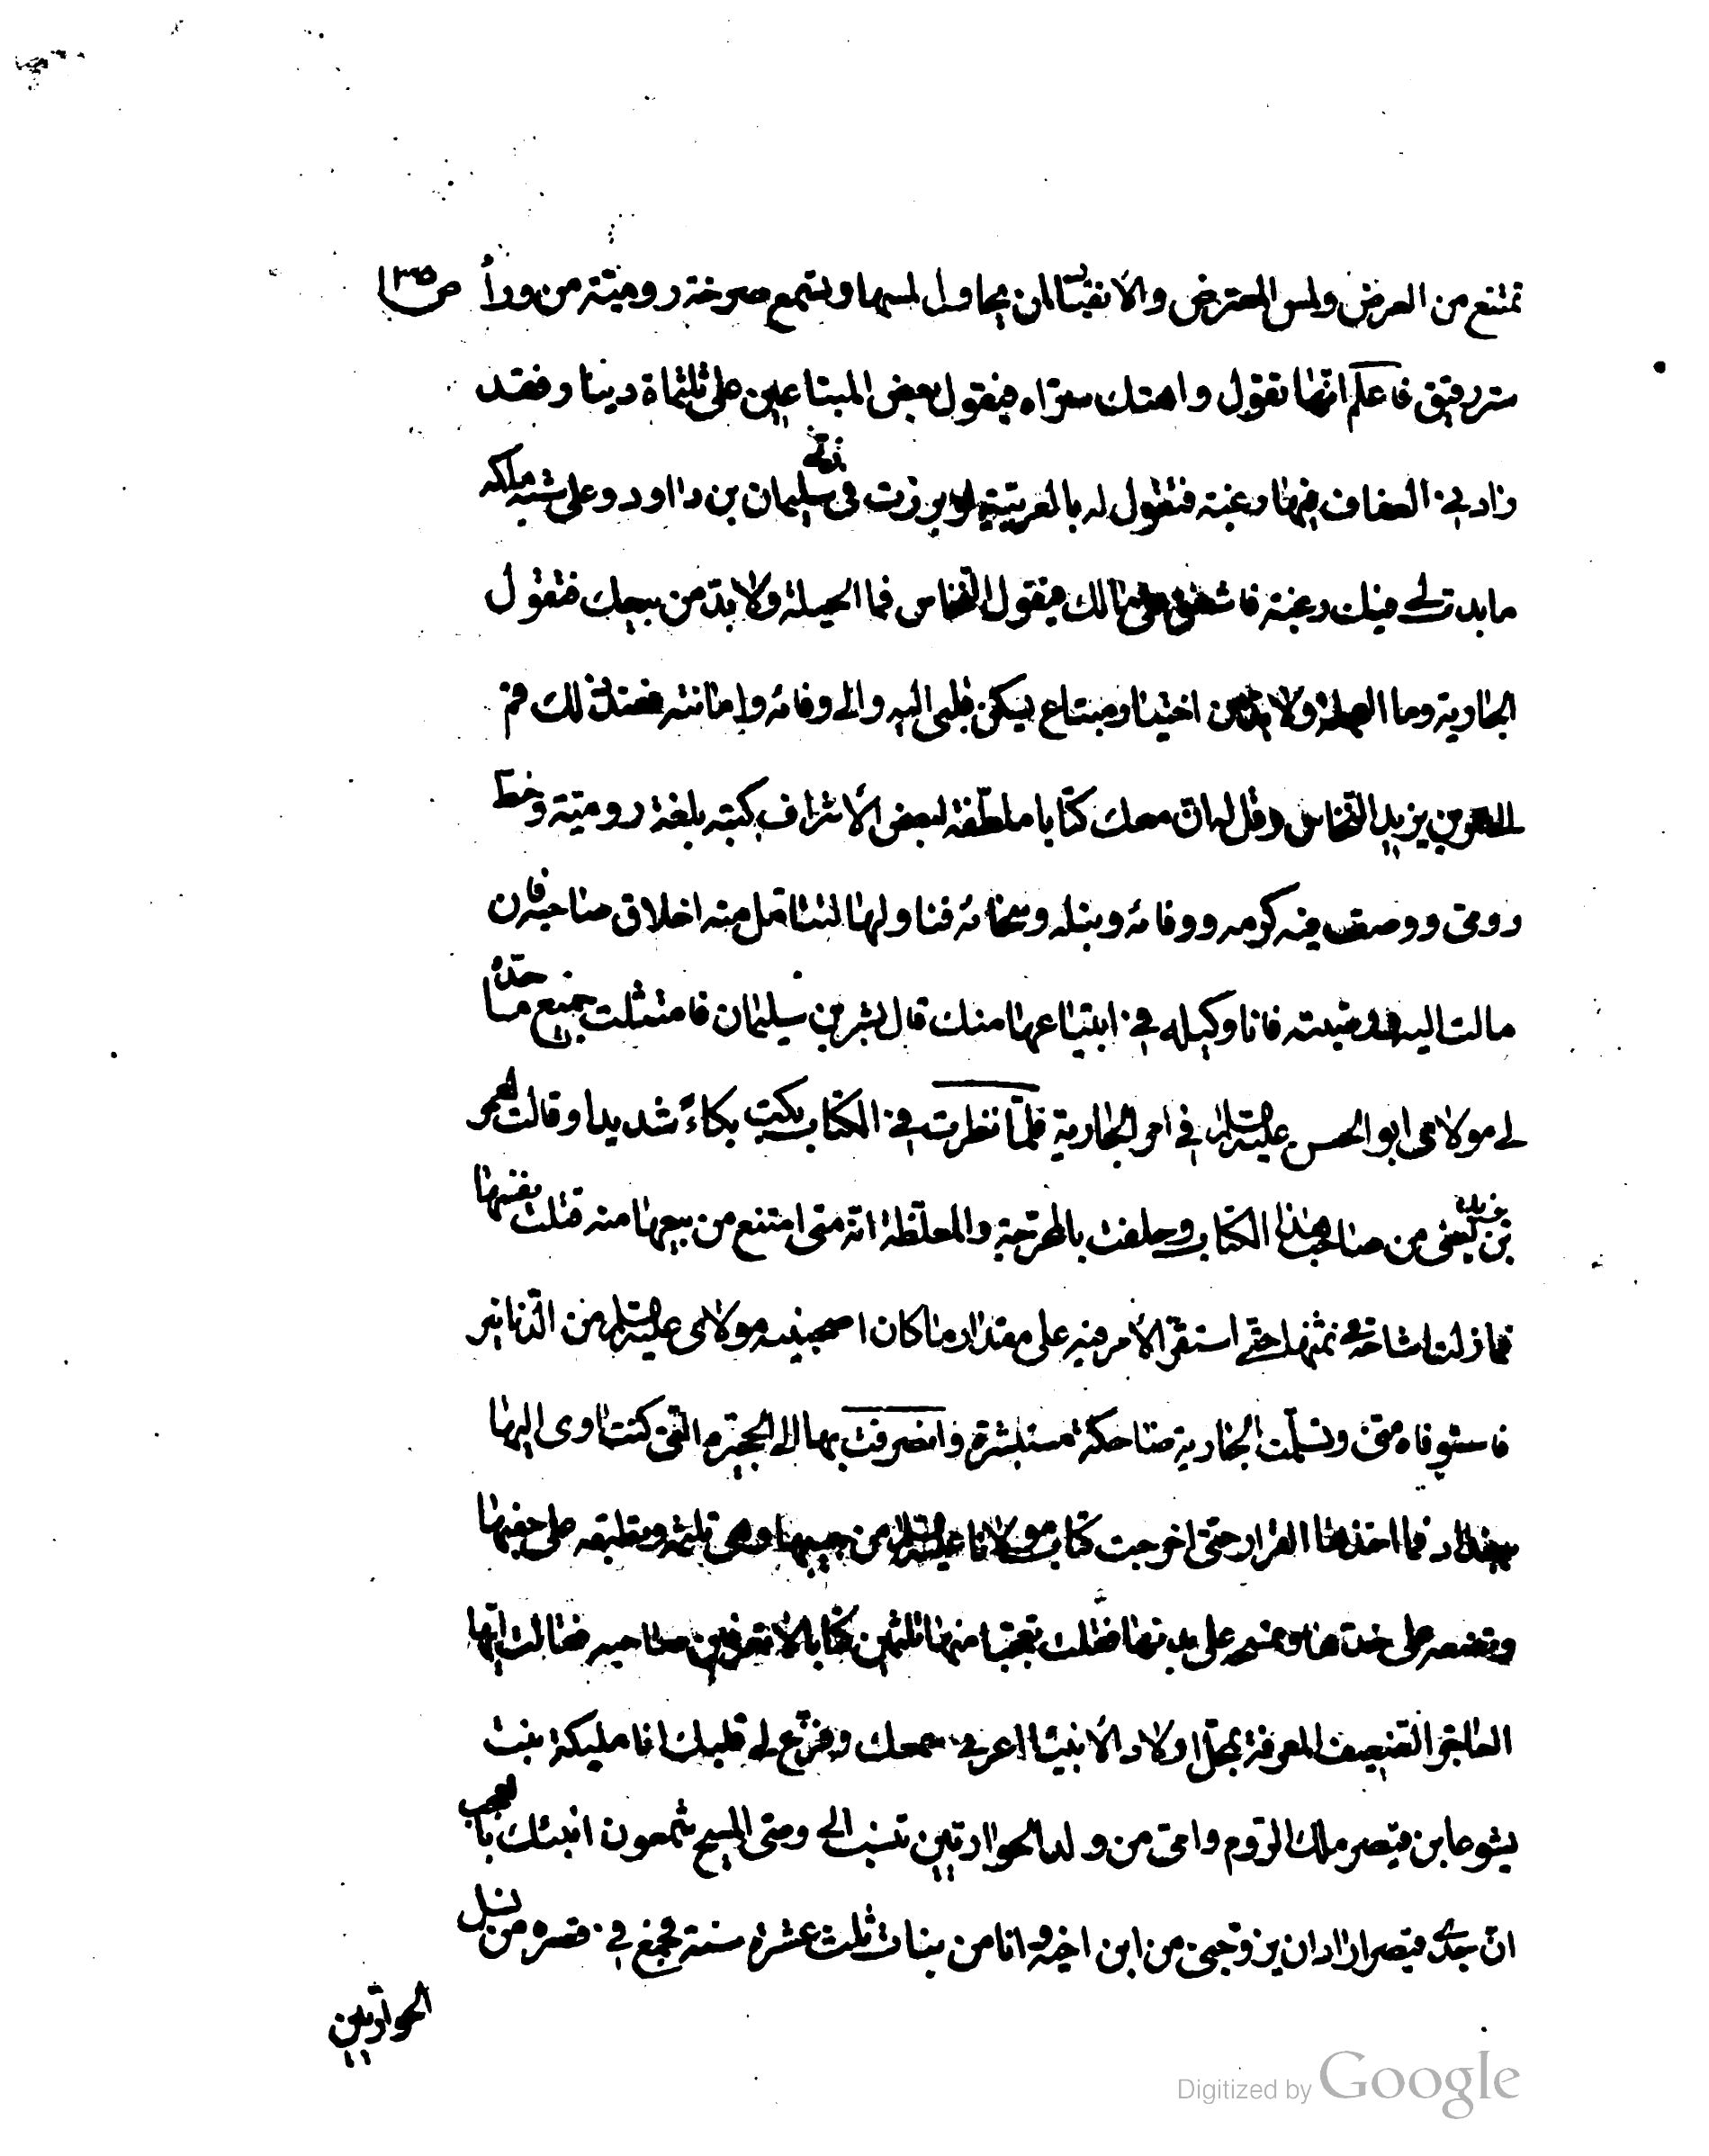 تمتنع من العرض ولمس المعترض والانقياد لمن يحاول لمسها وتسمع صرخة رومية من وراء ص ١٣٥
ستر رقيق فاعلم انها تقول واهتك ستراه فيقول بعض المبتاعين على ثلثماة دينار فقد
زادني العفاف فيها رغبة فتقول له بالعربية لو برزت في زى سليمان بن داود وعلى شبه ملكه
ما بدت لي فيك رغبة فاشفق على مالك فيقول النخاس فما الحيلة ولا بد من بيعك فتقول
الجارية وما العجلة ولا بد من اختيار مبتاع يسكن قلبي اليه والى وفائه وامانته فعند ذلك قم
الى عمر بن يزيد النخاس وقل له ان معك كتابا ملطفة لبعض الاشراف كتبه بلغة رومية وخط
رومي ووصف فيه كرمه ووفائه ونبله وسخائه فناولها لتتامل منه اخلاق صاحبه فان
مالت اليه ورضيته فانا وكيله في ابتياعها منك قال بشر بن سليمان فامتثلت جميع ما حده
لي مولاي ابو الحسن عليه السلام في امر الجارية فلما نظرت في الكتاب بكت بكاء شديدا وقالت لعمر
بن يزيد بعني من صاحب هذا الكتاب وحلفت بالمحرجة والمغلظة انه متى امتنع من بيعها منه قتلت نفسها
فما زلت اشاحه في ثمنها حتى استقر الامر فيه على مقدار ما كان اصحبنيه مولاي عليه السلام من الدنانير
فاستوفاه مني وتسلمت الجارية ضاحكة مستبشرة وانصرفت بها الى الحجيرة التي كنت اوى اليها
ببغداد فما اخذها القرار حتى اخرجت كتاب مولانا عليه السلام من جيبها وهي تلثمه وتطبقه على جفنها
وتضعه على خدها وتمسحه على بدنها فقلت تعجبا منها تلثمين كتابا لا تعرفين صاحبه فقالت ايها
العاجز الضعيف المعرفة بمحل اولاد الانبياء اعرني سمعك وفرغ لي قلبك انا مليكة بنت
يشوعا بن قيصر ملك الروم وامي من ولد الحواريين تنسب الى وصي المسيح شمعون انبئك بالعجب
ان جدي قيصر اراد ان يزوجني من ابن اخيه وانا من بنات ثلث عشرة سنة فجمع في قصره من نسل
الحواريين
Digitized by Google